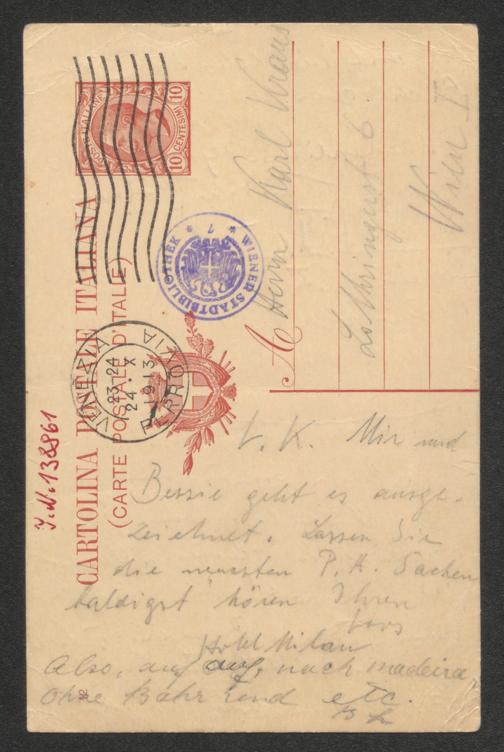 CARTOLINA POSTALE ITALIANA
(CARTE POSTALE D'ITALIE)
10 CENTESIMI 10
VENEZIA
23-24
24. X
1913
FERROVIA
WIENER STADTBIBLIOTHEK
* 7 *
J.N. 138861
A
Herrn Karl Kraus
Lothringerst. 6
Wien I
L. K. Mir und
Bessie geht es ausge-
zeichnet. Lassen Sie
die neuesten P. A. Sachen
baldigst hören Ihren
Loos
Hotel Milan
Also, auf auf, nach Madeira,
Ohne Bahr und etc.